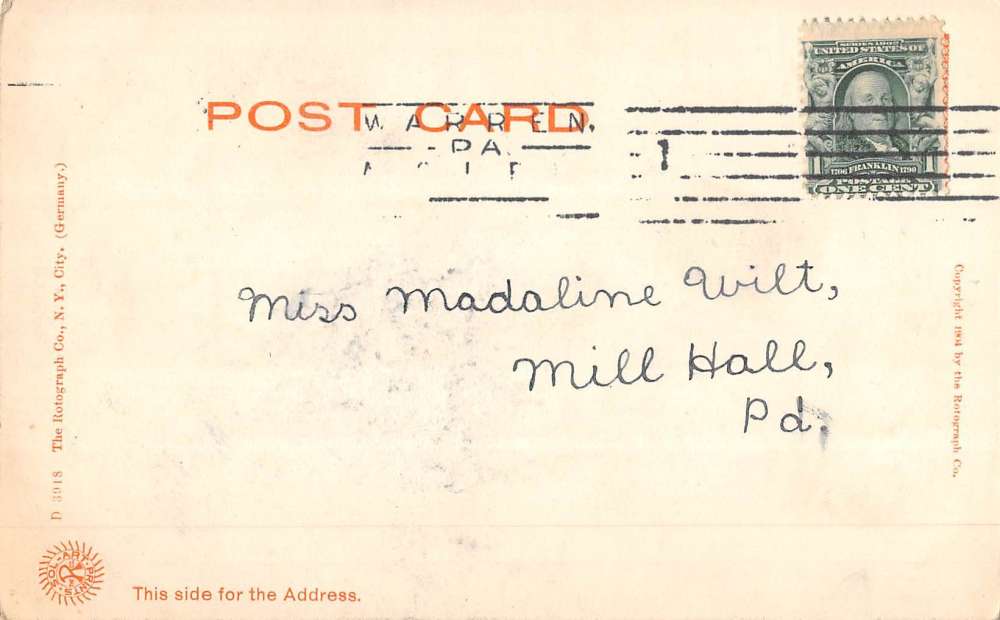 SERIES 1902
UNITED STATES OF
AMERICA
POST CARD
WARREN.
PA.
1
1706 FRANKLIN 1790
POSTAGE
ONE CENT
Miss Madaline Wilt,
Mill Hall,
Pa.
D 3918 The Rotograph Co., N. Y., City. (Germany.)
Copyright 1904 by the Rotograph Co.
SOL-ART PRINTS
This side for the Address.